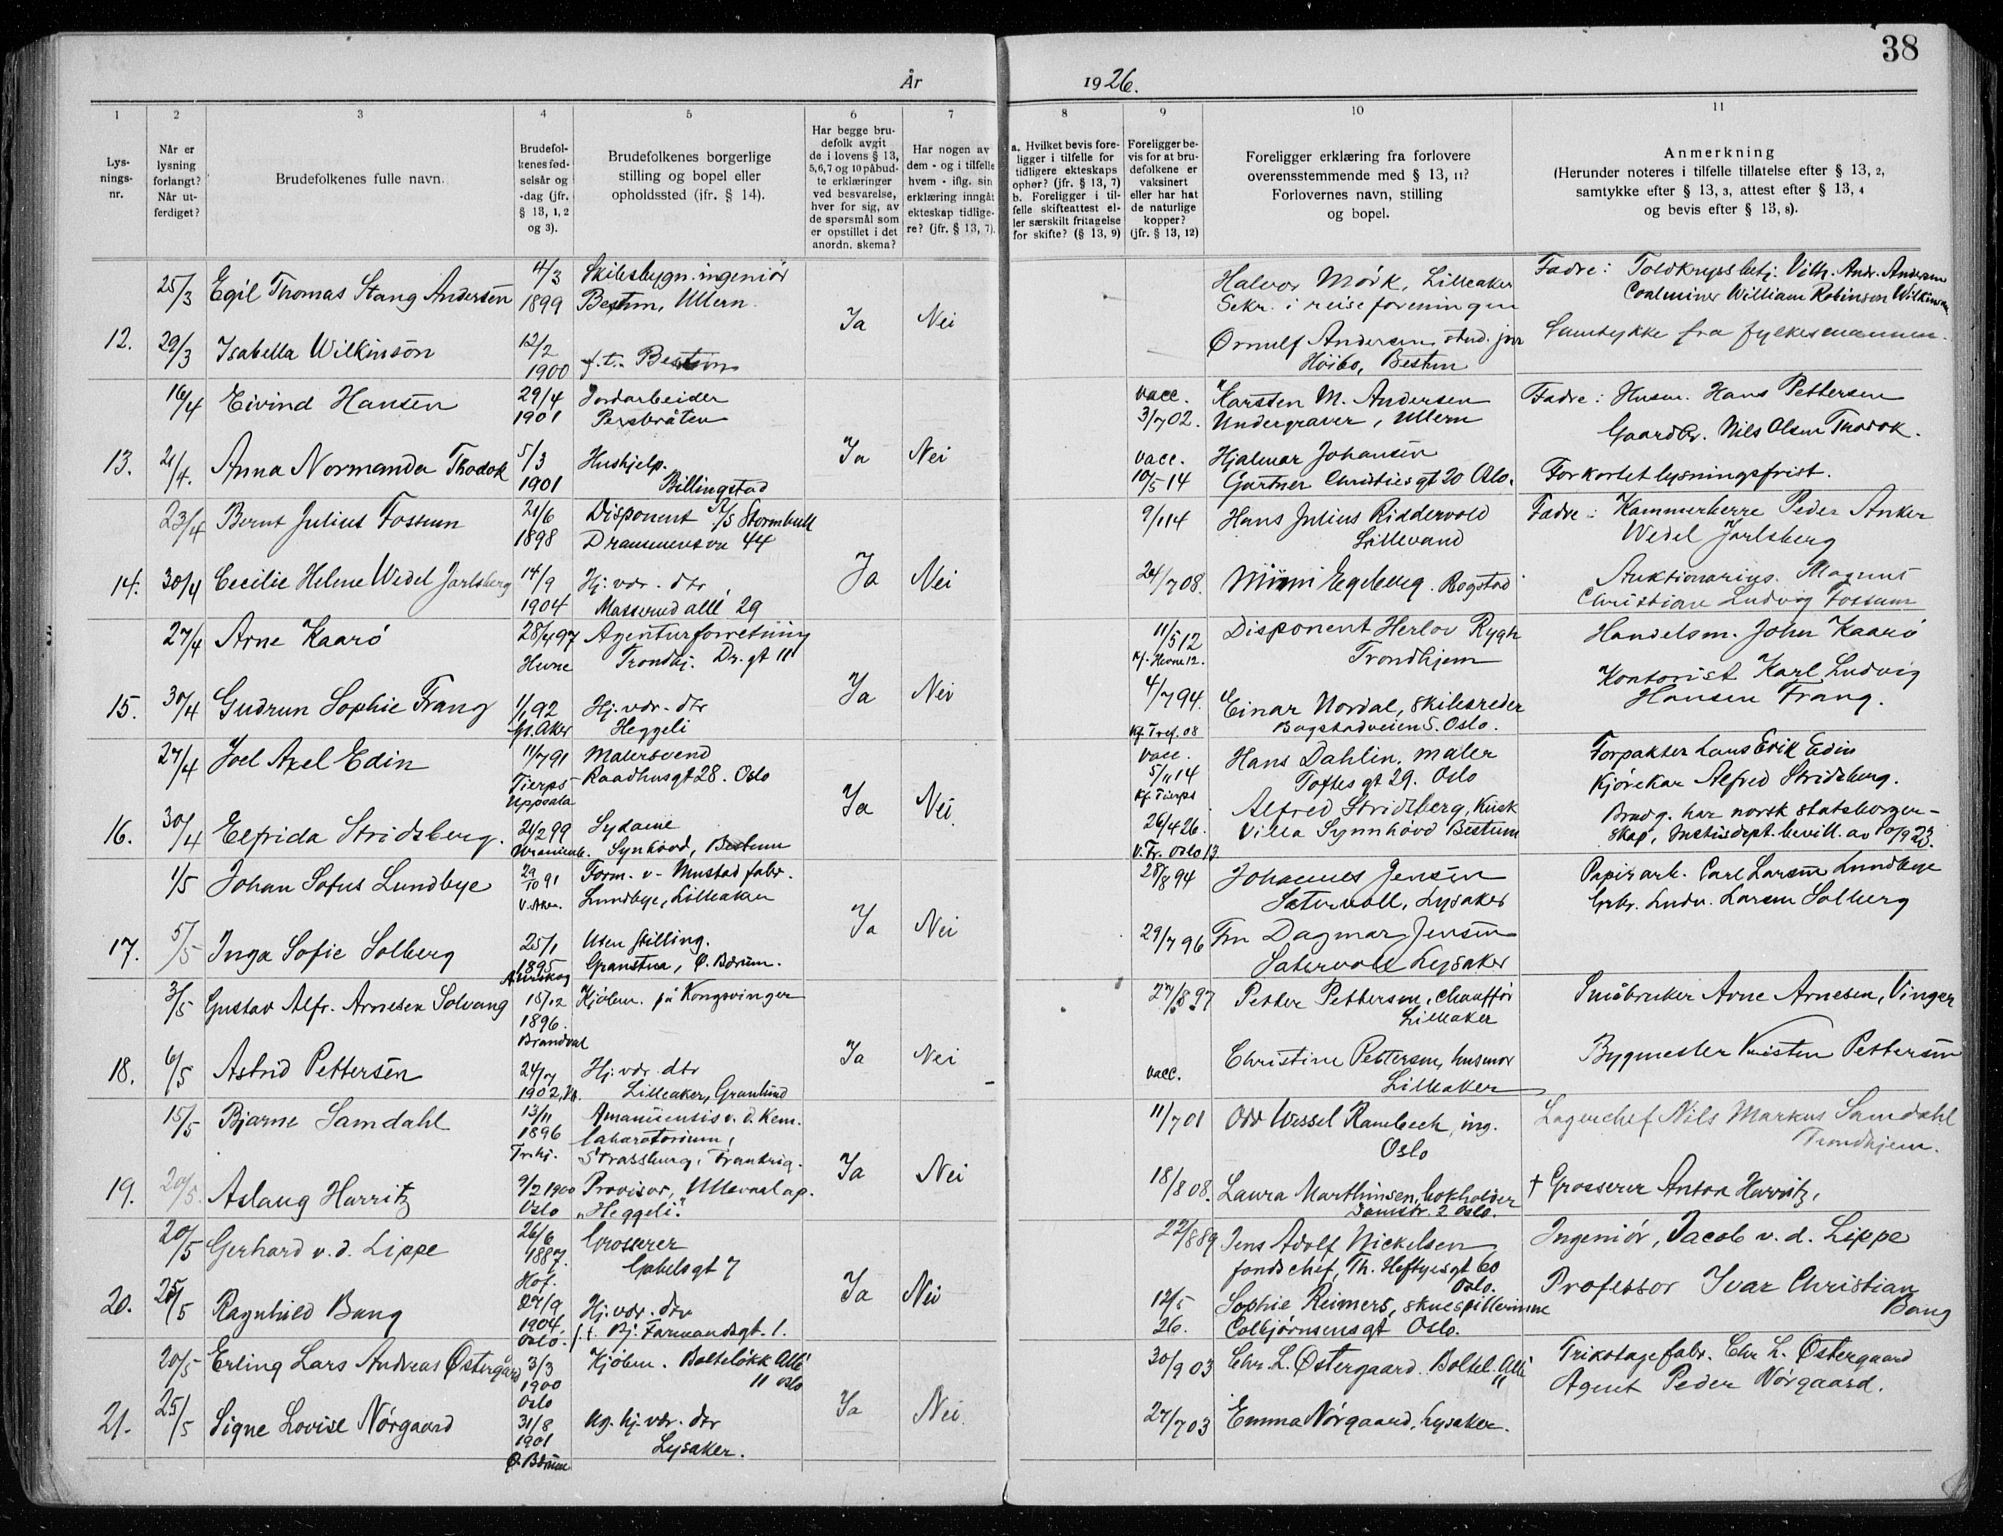 38
År 1926.
1 2 3 4 5 6 7 8 9 10 11
Lysningsnr.
Når er lysning forlangt? Når utferdiget?
Brudefolkenes fulle navn.
Brudefolkenes fødselsår og -dag (jfr. § 13, 1, 2 og 3).
Brudefolkenes borgerlige stilling og bopel eller opholdssted (jfr. § 14).
Har begge brudefolk avgit de i lovens § 13, 5,6,7 og 10 påbudte erklæringer ved besvarelse, hver for sig, av de spørsmål som er opstillet i det anordn. skema?
Har nogen av dem - og i tilfelle hvem - iflg. sin erklæring inngåt ekteskap tidligere? (jfr. § 13, 7).
a. Hvilket bevis foreligger i tilfelle for tidligere ekteskaps ophør? (jfr. § 13, 7) b. Foreligger i tilfelle skifteattest eller særskilt fritagelse for skifte? (§ 13, 9)
Foreligger bevis for at brudefolkene er vaksinert eller har hat de naturlige kopper? (jfr. § 13, 12)
Foreligger erklæring fra forlovere overensstemmende med § 13, 11? Forlovernes navn, stilling og bopel.
Anmerkning (Herunder noteres i tilfelle tillatelse efter § 13, 2, samtykke efter § 13, 3, attest efter § 13, 4 og bevis efter § 13, 8).
12.
25/3 Egil Thomas Stang Andersen 4/3 1899 Skibsbygn. ingeniör Bestum, Ullern.
29/3 Isabella Wilkinson 12/2 1900 f.t. Bestum
Ja Nei
Halvor Mörk, Lilleaker
Sekr. i reiseforeningen
Ørnulf Andersen stud. jur
Höibo, Bestum
Fadre: Toldkrydsbetj. Vilh. Andr. Andersen
Coalminer William Robinson Wilkinson
Samtykke fra fylkesmannen.
13.
16/4 Eivind Hansen 29/4 1901 Jordarbeider Persbråten
21/4. Anna Normanda Thodok 5/3 1901 Hushjelp. Billingstad
Ja Nei
vacc. 3/7 02. Karsten M. Andersen
Undergraver, Ullern
vacc. 10/5 14 Hjalmar Johansen
Gartner Christiesgt 20 Oslo.
Fadre: Husm. Hans Pettersen
Gaardbr. Nils Olsen Thodok.
Forkortet lysningsfrist.
14.
23/4 Bernt Julius Fossum 21/6 1898 Disponent A/S Stormbull Drammensvn 44
30/4 Cecilie Helene Wedel Jarlsberg 14/9 1904 Hj. vær. dtr. Masserud allé 29
Ja Nei
9/1 14 Hans Julius Riddervold
Lillevand
24/7 08. Mimi Egeberg. Bogstad
Fadre: Kammerherre Peder Anker
Wedel Jarlsberg
Auktionarius. Magnus
Christian Ludvig Fossum
15.
27/4 Arne Kaarö 28/4 97 Hevne Agenturforretning Trondhj. Dr. gt 11
30/4 Gudrun Sophie Frang 1/1 92 Gr. Aker Hj. vær. dtr Heggeli
Ja Nei
11/5 12 Kf. Hevne 12. Disponent Herlov Rygh
Trondhjem
4/7 94. Kf. Tref. 08 Einar Nordal, skibsreder
Bogstadveien 5. Oslo.
Handelsm. John Kaarö
Kontorist Karl Ludvig
Hansen Frang.
16.
27/4 Joel Axel Edin 11/7 91 Tierps Uppsala Malersvend Raadhusgt 28. Oslo
30/4 Elfrida Stridsberg. 24/2 99 Sydame Synhövd, Bestum
Ja Nei.
vacc. 5/11 14 Kf. Tierps Hans Dahlin, maler
Toftesgt 29. Oslo
26/4 26. V. Fr. Oslo 13. Alfred Stridsberg, Kusk
Villa Synnhövd Bestum
Forpakter Lars Erik Edin
Kjörekar Alfred Stridsberg.
Brudg. har norsk statsborger-
skap, Justisdept. bevill. av 10/9 23.
17.
1/5 Johan Sofus Lundbye 29/10 91 V. Aker. Form. v. Mustad fabr. Lundbye, Lilleaker
5/5 Inga Sofie Solberg 25/1 1895 Aurskog Uten stilling. Granstua, Ø. Bærum.
Ja Nei
28/8 94 Johannes Jensen
Sætervoll, Lysaker
29/7 96 Fru Dagmar Jensen
Sætervoll Lysaker
Papirarb. Carl Larsen Lundbye
Grbr. Ludv. Larsen Solberg
18.
3/5 Gustav Alfr. Arnesen Solvang 15/12 1896. Brandval Kjöbm. på Kongsvinger
6/5 Astrid Pettersen 24/7 1902, Hj. vær. dtr Lilleaker, Granlund
Ja Nei
27/8 97 Petter Pettersen, chaufför
Lilleaker
vacc. Christine Pettersen, husmor
Lilleaker
Småbruker Arne Arnesen, Vinger
Bygmester Kristen Pettersen
19.
15/5 Bjarne Samdahl 13/11 1896 Trhj. Amanuensis v. d. Kem. laboratorium, Strassburg, Frankrig.
20/5. Aslaug Harritz 9/2 1900 Oslo Provisor, Ullevaal ap. "Heggeli".
Ja Nei
11/7 01 Odd Wessel Rambech, ing.
Oslo
18/8 08. Laura Marthinsen, bokholder
2 Oslo.
Lagerchef Nils Markus Samdahl
Trondhjem.
† Grosserer Anton Harritz,
20.
20/5 Gerhard v. d. Lippe 26/6 1887. Hof. Grosserer Gabelsgt 7
25/5 Ragnhild Bang 27/9 1904. Oslo. Hj. vær. dtr f.t. Bj. Farmandsgt. 1.
Ja Nei
22/8 89 Jens Adolf Nickelsen
fondschef, Th. Heftyesgt 60
Oslo.
12/5 26. Sophie Reimers, skuespillerinne
Colbjørnsensgt Oslo.
Ingeniör, Jacob v. d. Lippe
Professor Ivar Christian
Bang
21.
20/5 Erling Lars Andreas Østergård 3/3 1900 Oslo Kjöbm. Bolteløkk Allé 11 Oslo
25/5 Signe Lovise Nörgaard 31/8 1901 Ø. Bærum Ug. hj. vær. dtr Lysaker.
Ja Nei.
30/9 03 Chr. L. Østergaard. Boltel. Allé 11
27/7 03 Emma Nörgaard, Lysaker.
Trikotagefabr. Chr. L. Østergaard
Agent Peder Nörgaard.